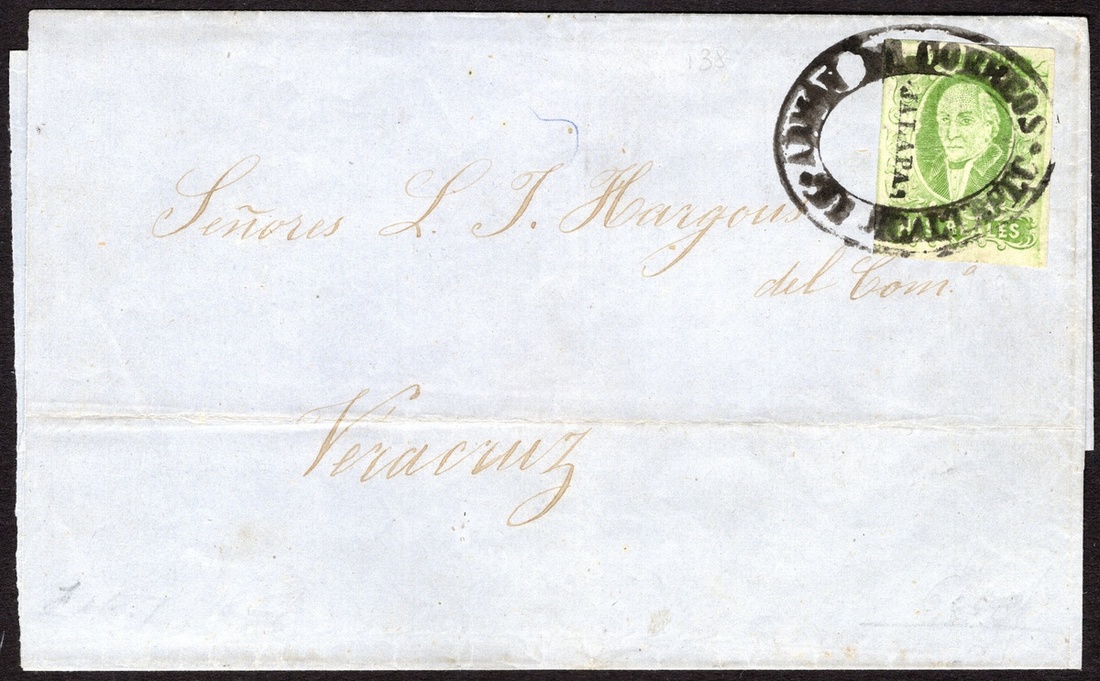 138
CORREOS.
JALAPA
REALES
Señores L. J. Hargous
del Com.ª
Veracruz